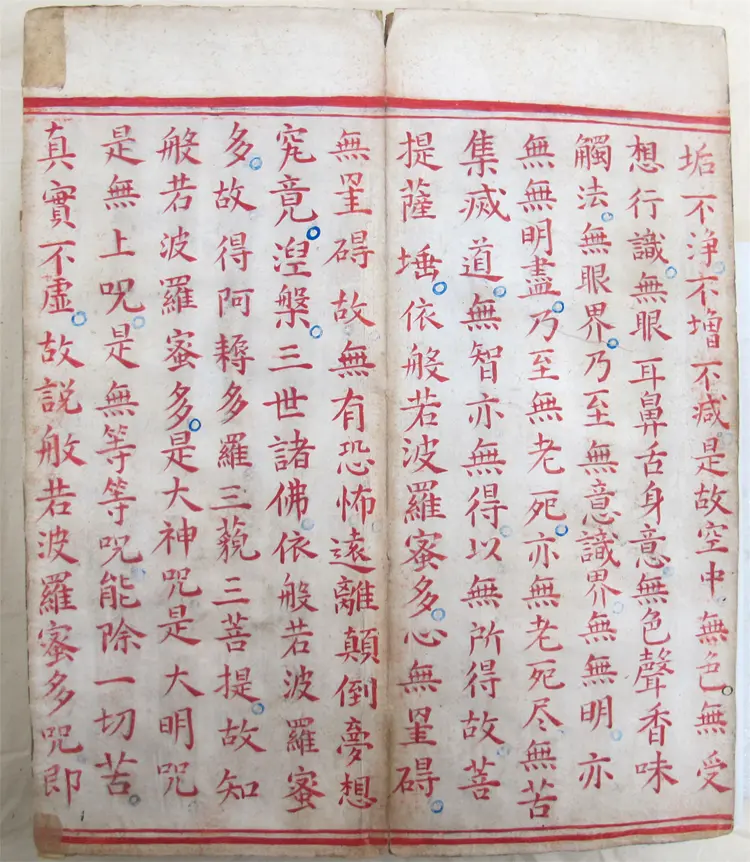 垢不浄。不增不減是故空中無色。無受
想行識。無眼耳鼻舌身意無色聲香味
觸法。無眼界。乃至無意識界。無無明。亦
無無明盡。乃至無老死。亦無老死尽無苦
集滅道。無智亦無得。以無所得故菩
提薩埵。依般若波羅蜜多。心無罣碍。
無罣碍故無有恐怖遠離顛倒夢想
究竟。涅槃。三世諸佛。依般若波羅蜜
多。故得阿耨多羅三藐三菩提。故知
般若波羅蜜多。是大神咒是大明咒
是無上咒。是無等等咒能除一切苦。
真實不虛。故說般若波羅蜜多咒即